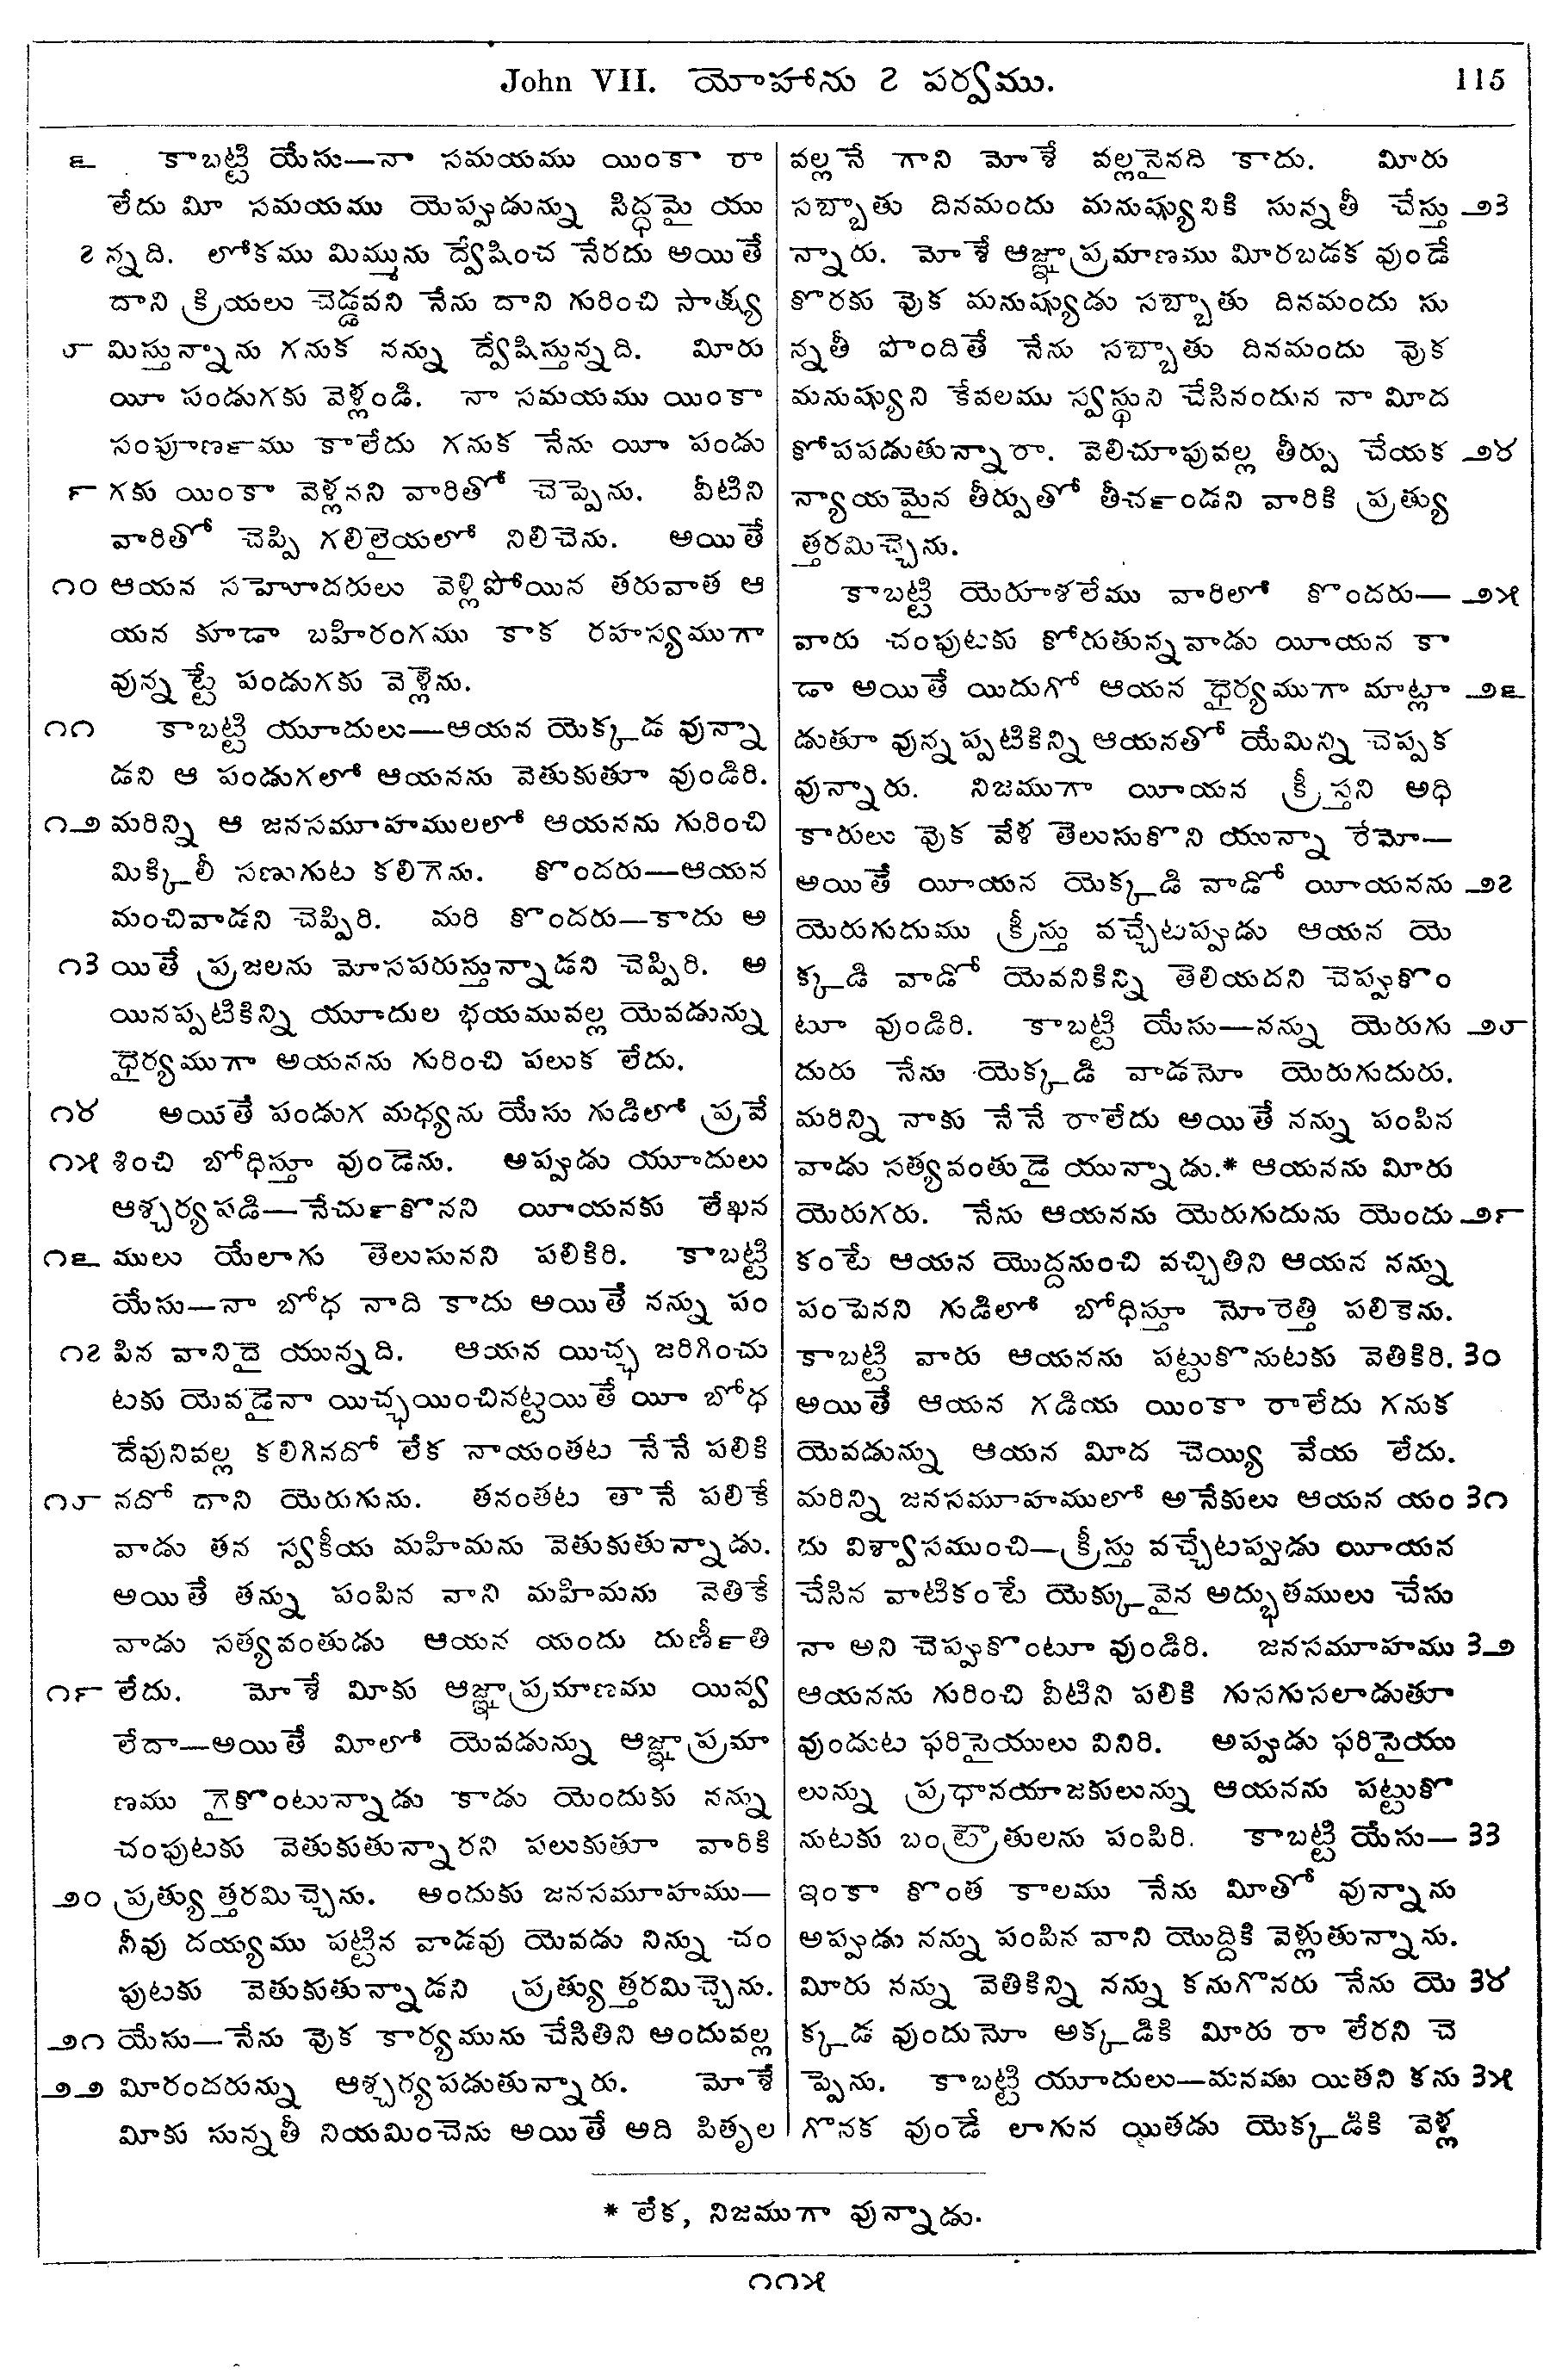 John VII. యోహాను ౭ పర్వము. 115
౬ కాబట్టి యేసు—నా సమయము యింకా రా
లేదు మీ సమయము యెప్పుడున్ను సిద్ధమై యు
౭ న్నది. లోకము మిమ్మును ద్వేషించ నేరదు అయితే
దాని క్రియలు చెడ్డవని నేను దాని గురించి సాక్ష్య
౮ మిస్తున్నాను గనుక నన్ను ద్వేషిస్తున్నది. మీరు
యీ పండుగకు వెళ్లండి. నా సమయము యింకా
సంపూణ౯ము కాలేదు గనుక నేను యీ పండు
౯ గకు యింకా వెళ్లనని వారితో చెప్పెను. వీటిని
వారితో చెప్పి గలిలైయలో నిలిచెను. అయితే
౧౦ ఆయన సహెూదరులు వెళ్లిపోయిన తరువాత ఆ
యన కూడా బహిరంగము కాక రహస్యముగా
వున్నట్టే పండుగకు వెళ్లెను.
౧౧ కాబట్టి యూదులు—ఆయన యెక్కడ వున్నా
డని ఆ పండుగలో ఆయనను వెతుకుతూ వుండిరి.
౧౨ మరిన్ని ఆ జనసమూహములలో ఆయనను గురించి
మిక్కిలీ సణుగుట కలిగెను. కొందరు—ఆయన
మంచివాడని చెప్పిరి. మరి కొందరు—కాదు అ
౧౩ యితే ప్రజలను మోసపరుస్తున్నాడని చెప్పిరి. అ
యినప్పటికిన్ని యూదుల భయమువల్ల యెవడున్ను
ధైర్యముగా అయనను గురించి పలుక లేదు.
౧౪ అయితే పండుగ మధ్యను యేసు గుడిలో ప్రవే
౧౫ శించి బోధిస్తూ వుండెను. అప్పుడు యూదులు
ఆశ్చర్యపడి—నేచు౯కొనని యీయనకు లేఖన
౧౬ ములు యేలాగు తెలుసునని పలికిరి. కాబట్టి
యేసు—నా బోధ నాది కాదు అయితే నన్ను పం
౧౭ పిన వానిదై యున్నది. ఆయన యిచ్ఛ జరిగించు
టకు యెవడైనా యిచ్ఛయించినట్టయితే యీ బోధ
దేవునివల్ల కలిగినదో లేక నాయంతట నేనే పలికి
౧౮ నదో దాని యెరుగును. తనంతట తానే పలికే
వాడు తన స్వకీయ మహిమను వెతుకుతున్నాడు.
అయితే తన్ను పంపిన వాని మహిమను వెతికే
వాడు సత్యవంతుడు ఆయన యందు దుణీ౯తి
౧౯ లేదు. మోశే మీకు ఆజ్ఞాప్రమాణము యివ్వ
లేదా—అయితే మీలో యెవడున్ను ఆజ్ఞాప్రమా
ణము గైకొంటున్నాడు కాడు యెందుకు నన్ను
చంపుటకు వెతుకుతున్నారని పలుకుతూ వారికి
౨౦ ప్రత్యుత్తరమిచ్చెను. అందుకు జనసమూహము—
నీవు దయ్యము పట్టిన వాడవు యెవడు నిన్ను చం
పుటకు వెతుకుతున్నాడని ప్రత్యుత్తరమిచ్చెను.
౨౧ యేసు—నేను వుక కార్యమును చేసితిని అందువల్ల
౨౨ మీరందరున్ను ఆశ్చర్యపడుతున్నారు. మోశే
మీకు సున్నతీ నియమించెను అయితే అది పితృల
వల్లనే గాని మోశే వల్లనైనది కాదు. మీరు
సబ్బాతు దినమందు మనుష్యునికి సున్నతీ చేస్తు ౨౩
న్నారు. మోశే ఆజ్ఞాప్రమాణము మీరబడక వుండే
కొరకు వుక మనుష్యుడు సబ్బాతు దినమందు సు
న్నతీ పొందితే నేను సబ్బాతు దినమందు వుక
మనుష్యుని కేవలము స్వస్థుని చేసినందున నా మీద
కోపపడుతున్నారా. వెలిచూపువల్ల తీర్పు చేయక ౨౪
న్యాయమైన తీర్పుతో తీచ౯ండని వారికి ప్రత్యు
త్తరమిచ్చెను.
కాబట్టి యెరూశలేము వారిలో కొందరు— ౨౫
వారు చంపుటకు కోరుతున్నవాడు యీయన కా
డా అయితే యిదుగో ఆయన ధైర్యముగా మాట్లా ౨౬
డుతూ వున్నప్పటికిన్ని ఆయనతో యేమిన్ని చెప్పక
వున్నారు. నిజముగా యీయన క్రీస్తని అధి
కారులు వుక వేళ తెలుసుకొని యున్నా రేమో—
అయితే యీయన యెక్కడి వాడో యీయనను ౨౭
యెరుగుదుము క్రీస్తు వచ్చేటప్పుడు ఆయన యె
క్కడి వాడో యెవనికిన్ని తెలియదని చెప్పుకొం
టూ వుండిరి. కాబట్టి యేసు—నన్ను యెరుగు ౨౮
దురు నేను యెక్కడి వాడనో యెరుగుదురు.
మరిన్ని నాకు నేనే రాలేదు అయితే నన్ను పంపిన
వాడు సత్యవంతుడై యున్నాడు.* ఆయనను మీరు
యెరుగరు. నేను ఆయనను యెరుగుదును యెందు ౨౯
కంటే ఆయన యొద్దనుంచి వచ్చితిని ఆయన నన్ను
పంపెనని గుడిలో బోధిస్తూ నోరెత్తి పలికెను.
కాబట్టి వారు ఆయనను పట్టుకొనుటకు వెతికిరి. ౩౦
అయితే ఆయన గడియ యింకా రాలేదు గనుక
యెవడున్ను ఆయన మీద చెయ్యి వేయ లేదు.
మరిన్ని జనసమూహములో అనేకులు ఆయన యం ౩౧
దు విశ్వాసముంచి—క్రీస్తు వచ్చేటప్పుడు యీయన
చేసిన వాటికంటే యెక్కువైన అద్భుతములు చేసు
నా అని చెప్పుకొంటూ వుండిరి. జనసమూహము ౩౨
ఆయనను గురించి వీటిని పలికి గుసగుసలాడుతూ
వుండుట ఫరిసైయులు వినిరి. అప్పుడు ఫరిసైయు
లున్ను ప్రధానయాజకులున్ను ఆయనను పట్టుకొ
నుటకు బంట్రౌతులను పంపిరి. కాబట్టి యేసు— ౩౩
ఇంకా కొంత కాలము నేను మీతో వున్నాను
అప్పుడు నన్ను పంపిన వాని యొద్దికి వెళ్లుతున్నాను.
మీరు నన్ను వెతికిన్ని నన్ను కనుగొనరు నేను యె ౩౪
క్కడ వుందునో అక్కడికి మీరు రా లేరని చె
ప్పెను. కాబట్టి యూదులు—మనము యితని కను ౩౫
గొనక వుండే లాగున యితడు యెక్కడికి వెళ్ల
* లేక, నిజముగా వున్నాడు.
౧౧౫